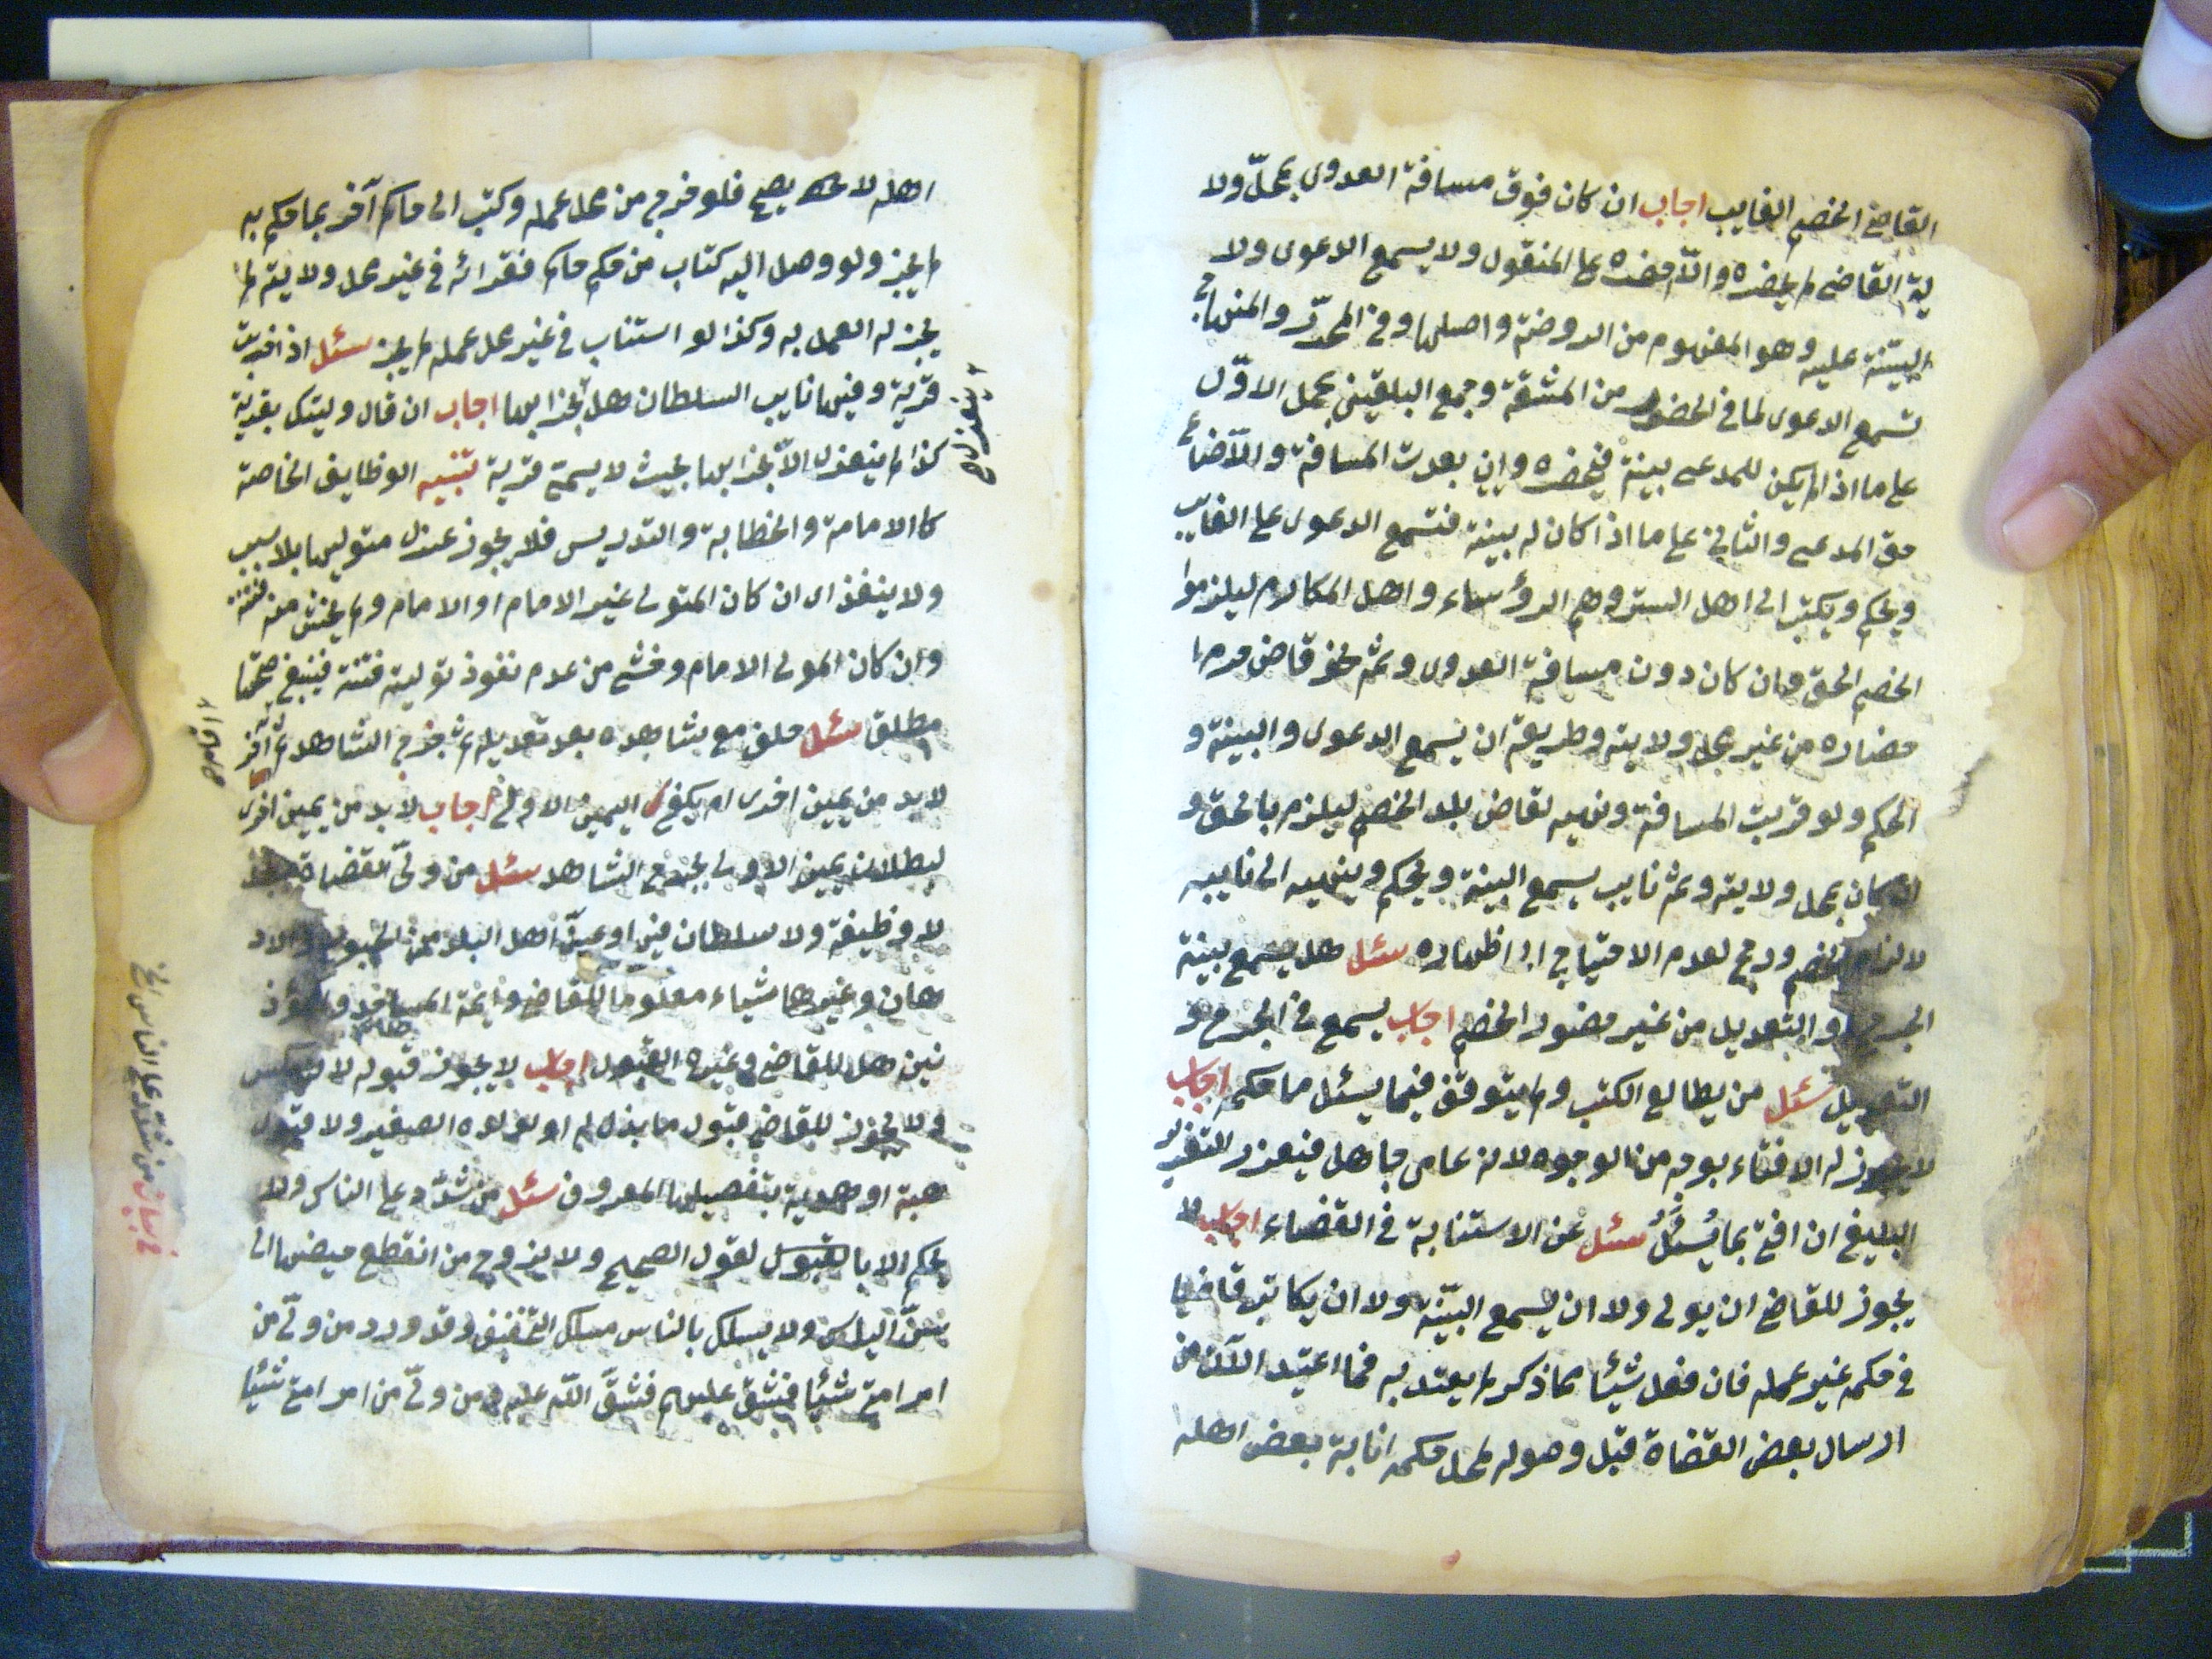 القاضي الخصم الغايب اجاب ان كان فوق مسافة العدوى بمحلّ ولا
ية القاضي لم يحضره والّا احضره على المنقول ولا يسمع الدعوى ولا
البيّنة عليه وهو المفهوم من الروضة واصلها وفي المحرّر والمنهاج
تسمع الدعوى لما في الحضور من المشقة وجمع البلقيني بحمل الاوّل
على ما اذا لم يكن للمدعي بينة فيحضره وإن بعدت المسافة والّا ضاع
حق المدعي والثاني على ما اذا كان له بينة فتسمع الدعوى على الغايب
ويحكم ويكتب الى اهل الستر وهم الرؤساء واهل المكارم ليلزموا
الخصم الحق وان كان دون مسافة العدوى وثم نحو قاض حرم ا
حضاره من غير محل ولايته وطريقه ان يسمع الدعوى والبينة و
الحكم ولو قربت المسافة وينهيه لقاض بلد الخصم ليلزمه بالحق و
ان كان بمحل ولايته وثم نايب يسمع البينة ويحكم وينهيه الى نايبه
لالزام الخصم ورجح لعدم الاحتياج الى اظهاره سئل هل يسمع بينة
الجرح والتعديل من غير حضور الخصم اجاب يسمع في الجرح و
التعديل سئل من يطالع الكتب ولم يتوقف فيما يسئل ما حكمه اجاب
لا يجوز له الافتاء بوجه من الوجوه لانه عامى جاهل فيعزر التعزير
البليغ ان افتى بما يُسئلُ سئل عن الاستنابة في القضاء اجاب لا
يجوز للقاضي ان يولى ولا ان يسمع البيّنة ولا ان يكاتب قاضيا
في حكمه غير عمله فان فعل شيئا مما ذكر لم يعتد به فما اعتيد الآن من
ارسال بعض القضاة قبل وصوله لمحل حكمه انابة بعض اهله
اهله لا يصح فلو خرج من محل عمله وكتب الى حاكم آخر بما حكم به
لم يجز ولو وصل اليه كتاب من حكم حاكم فقرائه في غير محل ولايته لم
يجز له العمل به وكذا لو استناب في غير محل عمله لم يجز سئل اذ اخربت
قرية وفيها نايب السلطان هل بخرابها اجاب ان قال وليتك بقرية
كذا لم ينعزل الّا بخرابها بحيث لا يسمى قرية تنبيه الوظايف الخاصة
كالامامة والخطابة والتدريس فلا يجوز عزل متوليها بلا سبب
ولا ينفذ اى ان كان المتولى غير الامام او الامام ولم يخش منه فتنة
وان كان المولى الامام وخشي من عدم نفوذ توليته فتنة فينبغي صحتها
مطلقا سئل حلف مع شاهده بعد تعديله ثم خرج الشاهد ثم آخر
لا بد من يمين اخرى ام يكفى اليمين الاولى اجاب لا بد من يمين اخرى
لبطلان يمين الاولى بجرح الشاهد سئل من ولىّ القضاة
لا وظيفة ولا سلطان فيه او عيّن اهل البلد من الحبوب والاد
هان وغيرها شياء معلوما للقاضي وايمة المساجد والمؤذ
نين هل للقاضي وغيره القبول اجاب لا يجوز قبوله لانه مكس
ولا يجوز للقاضي قبول ما بذل له او لولده الصغير ولا قبول
هبة او هدية بتفصيلها المعروف سئل من شدّد على الناس ولا
يحكم الا بالقبول لقول الصحيح ولا يزوج من انقطع حيضها الى
سنّ اليأس ولا يسلك بالناس مسلك التخفيف وقد ورد من ولّى من
امر امتى شيئا فشق عليهم فشقَّ اللّه عليه ومن ولّى من امر امتى شيئا
ينعزل
في بيان من شدّد على الناس الخ